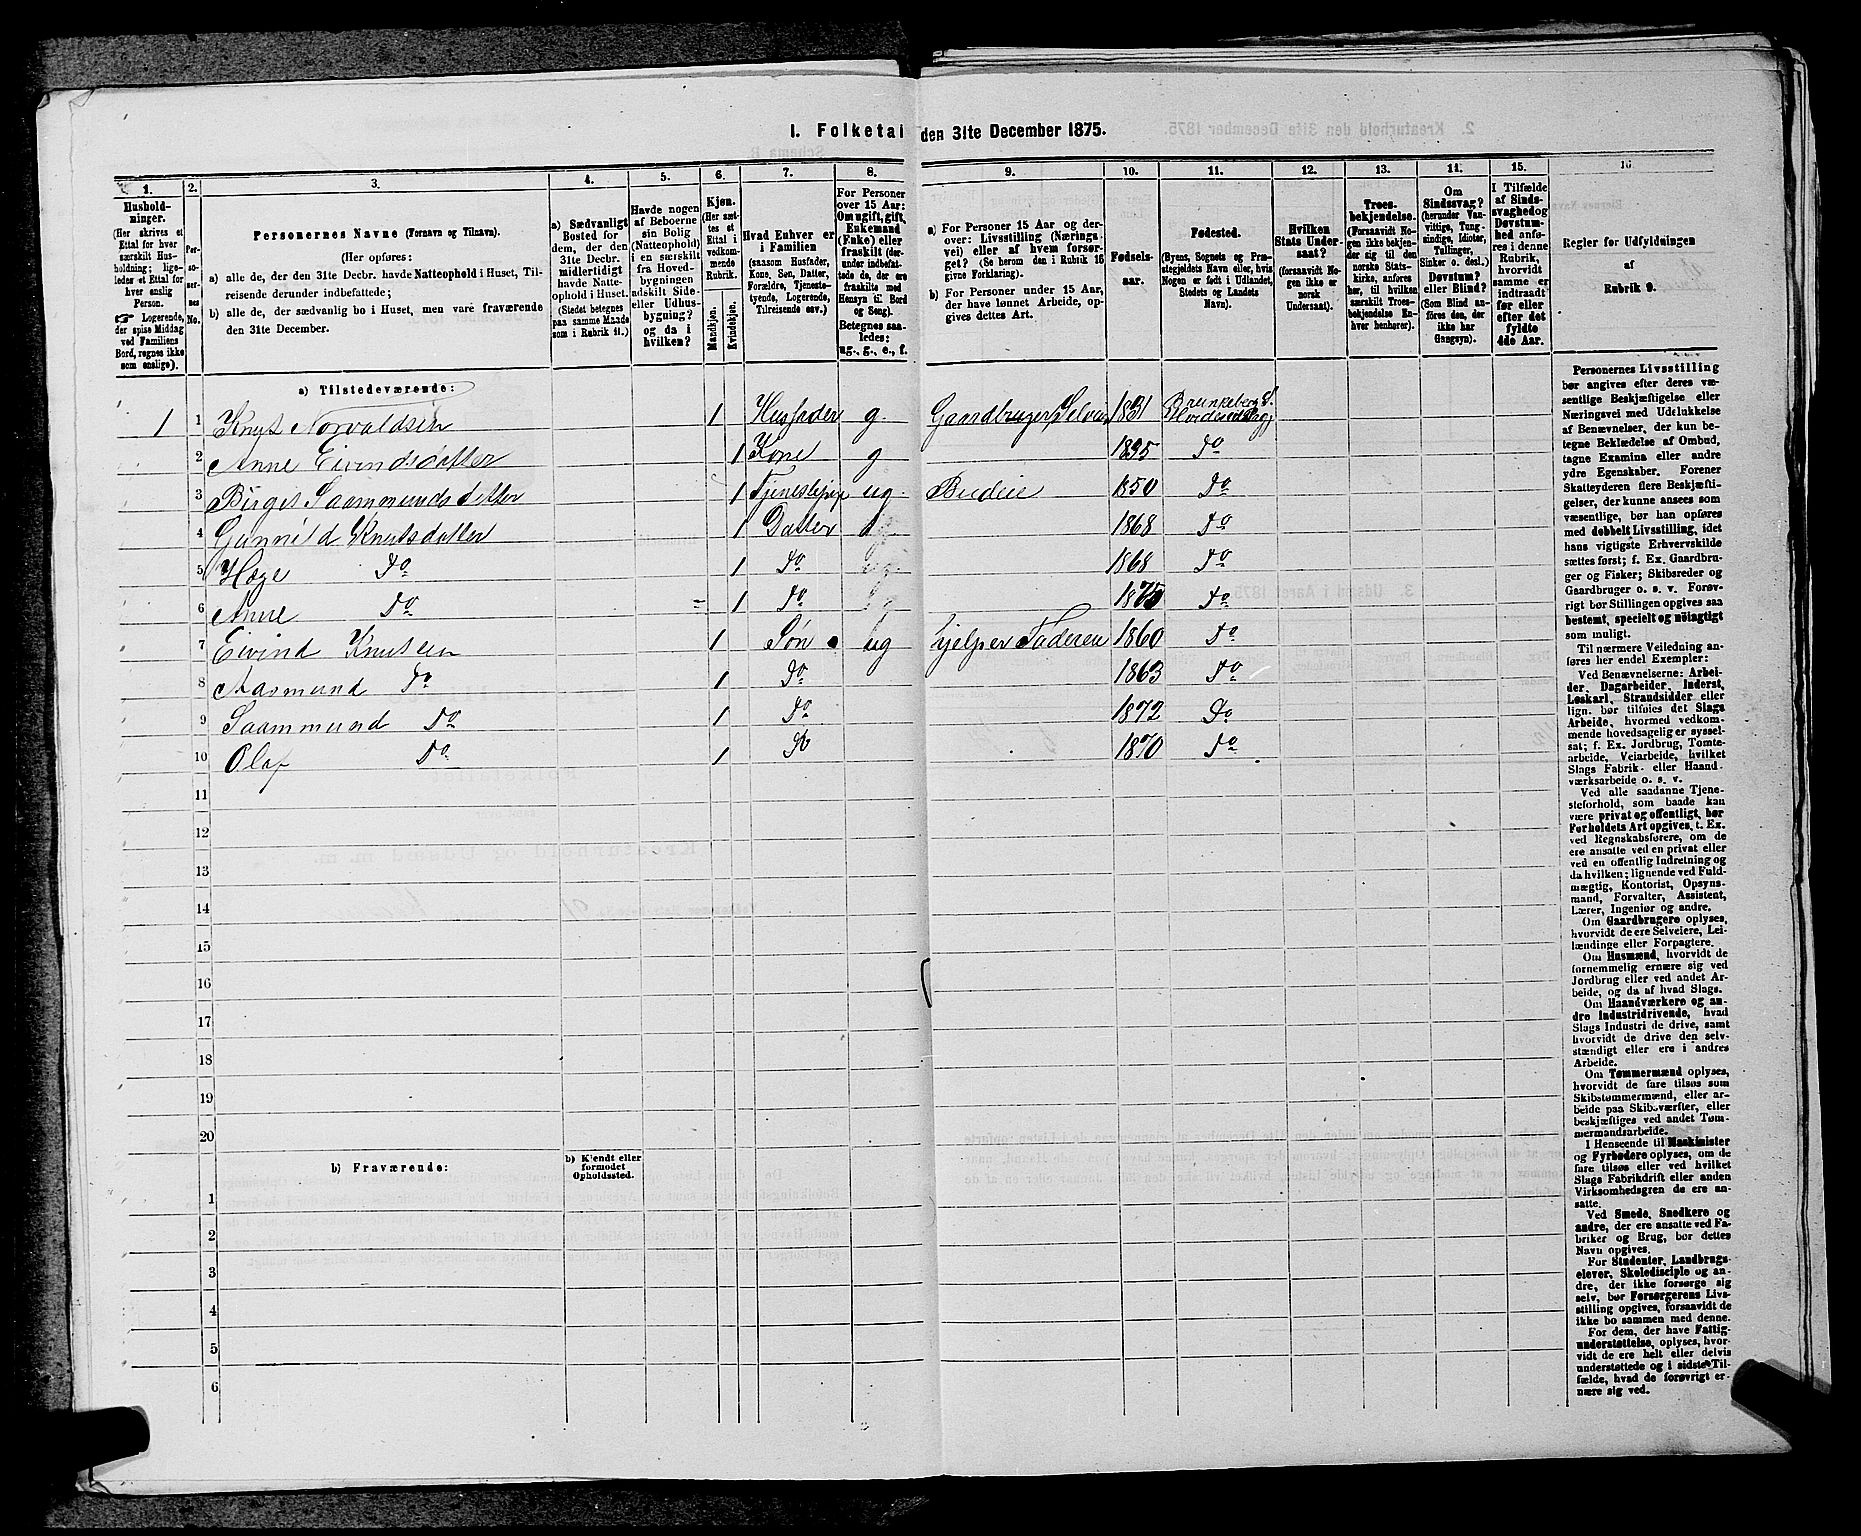 1. Folketal den 31te December 1875.
1. 2. 3. 4. 5. 6. 7. 8. 9. 10. 11. 12. 13. 14. 15. 16.
Hushold-
ninger.
(Her skrives et
Ettal for hver
særskilt Hus-
holdning; lige-
ledes et Ettal for
hver enslig
Person.
☞ Logerende,
der spise Middag
ved Familiens
Bord, regnes ikke
som enslige).
Per-
so-
ner-
nes
No.
Personernes Navne (Fornavn og Tilnavn).
(Her opføres:
a) alle de, der den 31te Decbr. havde Natteophold i Huset, Til-
reisende derunder indbefattede;
b) alle de, der sædvanlig bo i Huset, men vare fraværende
den 31te December.
a) Sædvanligt
Bosted for
dem, der den
31te Decbr.
midlertidigt
havde Natte-
ophold i Huset.
(Stedet betegnes
paa samme Maade
som i Rubrik 11.)
Havde nogen
af Beboerne
sin Bolig
(Natteophold)
i en særskilt
fra Hoved-
bygningen
adskilt Side-
eller Udhus-
bygning?
og da i
hvilken?
Kjøn.
(Her sæt-
tes et
Ettal i
vedkom-
mende
Rubrik.
Mandkjøn.
Kvindekjøn.
Hvad Enhver er
i Familien
(saasom Husfader,
Kone, Søn, Datter,
Forældre, Tjeneste-
tyende, Logerende,
Tilreisende osv.)
For Personer
over 15 Aar:
Om ugift, gift,
Enkemand
(Enke) eller
fraskilt (der-
under indbefat-
tede de, der ere
fraskilte med
Hensyn til Bord
og Seng).
Betegnes saa-
ledes:
ug., g., e., f.
a) For Personer 15 Aar og der-
over: Livsstilling (Nærings-
vei) eller af hvem forsør-
get? (Se herom den i Rubrik 16
givne Forklaring).
b) For Personer under 15 Aar,
der have lønnet Arbeide, op-
gives dettes Art.
Fødsels-
aar.
Fødested.
(Byens, Sognets og Præ-
stegjeldets Navn eller, hvis
Nogen er født i Udlandet,
Stedets og Landets
Navn).
Hvilken
Stats Under-
saat?
(forsaavidt No-
gen ikke er
norsk
Undersaat).
Troes-
bekjendelse.
(Forsaavidt No-
gen ikke bekjen-
der sig til den
norske Stats-
kirke, anføres
her, til hvilken
særskilt Troes-
bekjendelse En-
hver henhører).
Om
Sindssvag?
(herunder Van-
vittige, Tung-
sindige, Idioter,
Tullinger,
Sinker o. desl.)
Døvstum?
eller Blind?
(Som Blind an-
føres den, der
ikke har
Gangsyn).
I Tilfælde
af Sinds-
svaghed og
Døvstum-
hed anfø-
res i denne
Rubrik,
hvorvidt
samme er
indtraadt
før eller
efter det
fyldte
4de Aar.
Regler for Udfyldningen
af
Rubrik 9.
a) Tilstedeværende:
1 1 Knut Norvaldsen 1 Husfader g. Gaardbruger Selveier 1831 Brunkeberg S.
2 Anne Eivindsdatter 1 Kone g 1835 Do
3 Birgit Saammundsdatter 1 ug. Budeie 1850 Do
4 Gunnild Knutsdatter 1 Datter 1868 Do
5 Hæge Do 1 Do 1868 Do
6 Anne Do 1 Do 1875 Do
7 Eivind Knutsen 1 Søn ug hjelper Faderen 1860 Do
8 Aasmund Do 1 Do 1863 Do
9 Saammund Do 1 Do 1872 Do
10 Olaf Do 1 Do 1870 Do
11
12
13
14
15
16
17
18
19
20
b) Fraværende:
b) Kjendt eller
formodet
Opholdssted.
1
2
3
4
5
6
Personernes Livsstilling
bør angives efter deres væ-
sentlige Beskjæftigelse eller
Næringsvei med Udelukkelse
af Benævnelser, der kun be-
tegne Beklædelse af Ombud,
tagne Examina eller andre
ydre Egenskaber. Forener
Skatteyderen flere Beskjæfti-
gelser, der kunne ansees som
væsentlige, bør han opføres
med dobbelt Livsstilling, idet
hans vigtigste Erhvervskilde
sættes først; f. Ex. Gaardbru-
ger og Fisker; Skibsreder og
Gaardbruger o. s. v. Forøv-
rigt bør Stillingen opgives saa
bestemt, specielt og nøiagtigt
som muligt.
Til nærmere Veiledning an-
føres her endel Exempler:
Ved Benævnelserne: Arbei-
der, Dagarbeider, Inderst,
Løskarl, Strandsidder eller
lign. bør tilføies det Slags
Arbeide, hvormed vedkom-
mende hovedsagelig er syssel-
sat; f. Ex. Jordbrug, Tomte-
arbeide, Veiarbeide, hvilket
Slags Fabrik- eller Haand-
værksarbeide o. s. v.
Ved alle saadanne Tjene-
steforhold, som baade kan
være privat og offentligt, bør
Forholdets Art opgives, t. Ex.
ved Regnskabsførere, om de
ere ansatte ved en privat eller
ved en offentlig Indretning og
da hvilken; lignende ved Fuld-
mægtig, Kontorist, Opsyns-
mand, Forvalter, Assistent,
Lærer, Ingeniør og andre.
Om Gaardbrugere oplyses,
hvorvidt de ere Selveiere, Lei-
lændinge eller Forpagtere.
Om Husmænd, hvorvidt de
fornemmelig ernære sig ved
Jordbrug eller ved andet Ar-
beide, og da af hvad Slags.
Om Haandværkere og an-
dre Industridrivende, hvad
Slags Industri de drive, samt
hvorvidt de drive den selv-
stændigt eller ere i andres
Arbeide.
Om Tømmermænd oplyses,
hvorvidt de fare tilsøs som
Skibstømmermænd, eller ar-
beide paa Skibsværfter, eller
beskjæftiges ved andet Tøm-
mermandsarbeide.
I Henseende til Maskinister
og Fyrbødere oplyses, om de
fare tilsøs eller ved hvilket
Slags Fabrikdrift eller anden
Virksomhedsgren de ere an-
satte.
Ved Smede, Snedkere og
andre, der ere ansatte ved Fa-
briker og Brug, bør dettes
Navn opgives.
For Studenter, Landbrugs-
elever, Skoledisciple og an-
dre, der ikke forsørge sig
selv, bør Forsørgerens Livs-
stilling opgives, forsaavidt de
ikke bo sammen med denne.
For dem, der have Fattig-
understøttelse, oplyses, hvor-
vidt de ere helt eller delvis
understøttede og i sidste Til-
fælde, hvad de forøvrigt er-
nære sig ved.